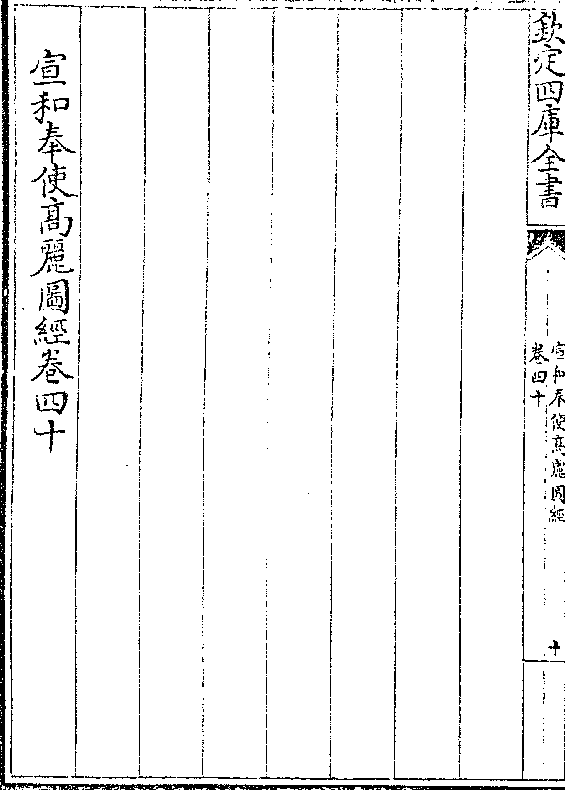 欽定四庫全書
宣和奉使高麗圖經
卷四十
十
宣和奉使高麗圖經卷四十